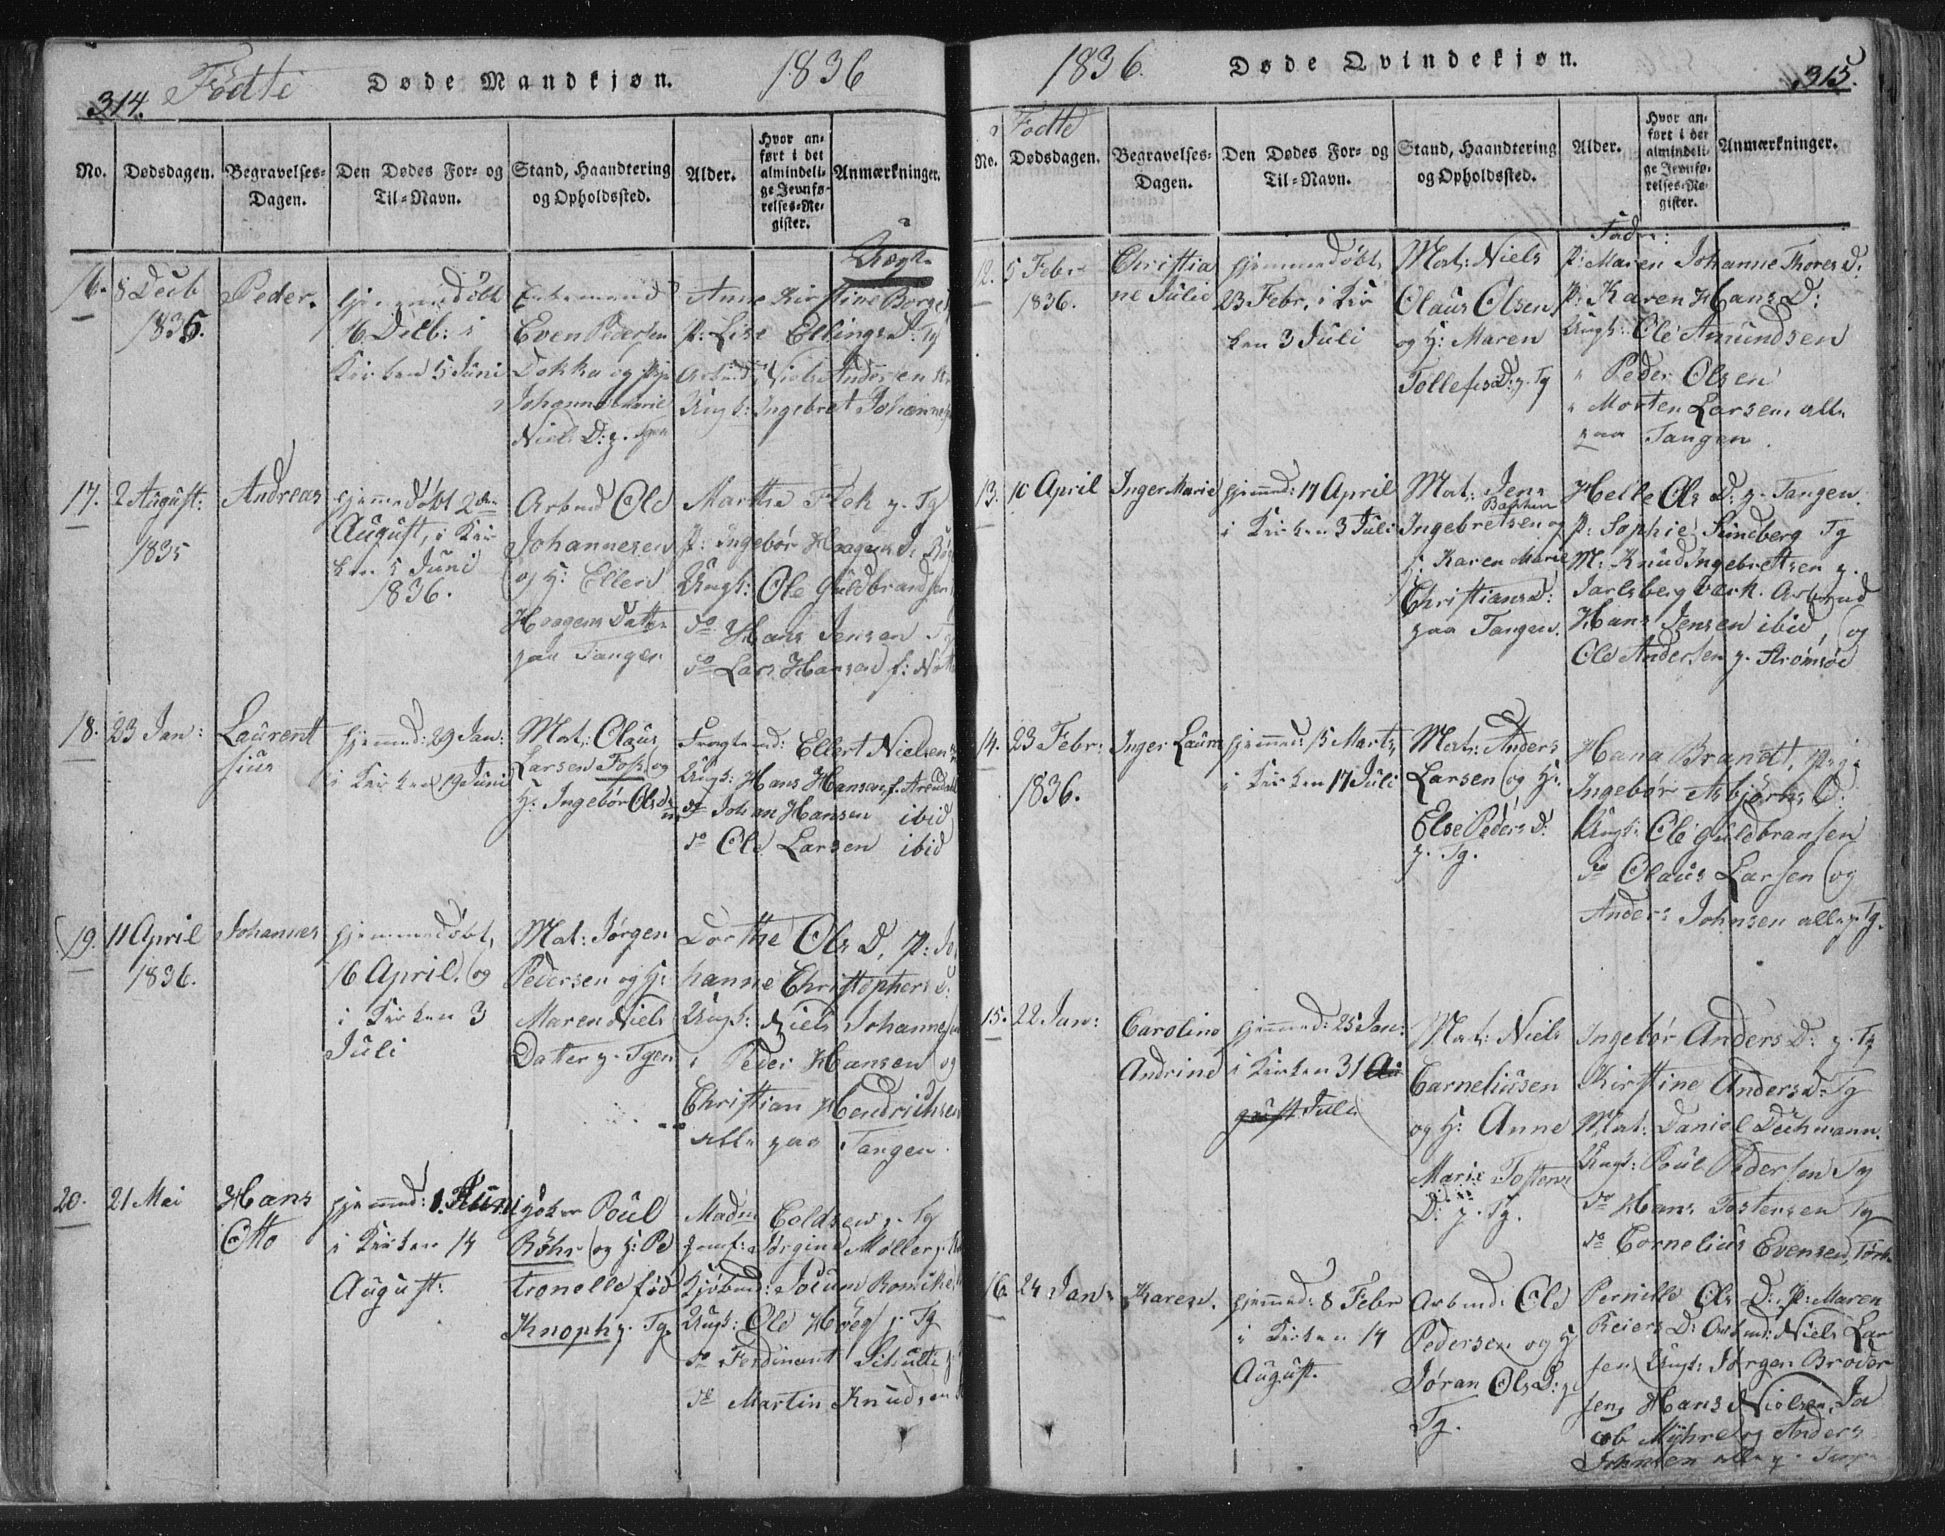 314.
Födte
Døde Mandkjøn.
1836
No.
Dødsdagen.
Begravelses-
Dagen.
Den Dødes For- og
Til-Navn.
Stand, Haandtering
og Opholdssted.
Alder.
Hvor an-
ført i det
almindeli-
ge Jevnfø-
relses-Re-
gister.
Anmærkninger.
16.
8 Decb
1835.
Peder.
hjemmedöbt
16 Decb: i
Kirken 5 Juni
Enkemand
Even Pedersen
Dokka og Pige
Johanne Marie
Niels D: p. Tgen
Anne Kirstine Borge
P: Lise Ellings D: Tg
Arbmd Niels Andersen
Ungk: Ingebret Johannes
17.
2 August:
1835
Andreas
hjemmedöbt 2den
August, i Kir
ken 5 Juni
1836.
Arbmd Ole
Johannesen
og H: Ellen
Haagens Datter
paa Tangen
Marthe Flek p. Tg
P: Ingebör Haagens D.
Ungk: Ole Guldbrandsen
do Hans Jensen Tg
do Lars Hansen
18.
23 Jan:
Laurent
sius
hjemmed: 29 Jan:
i Kirken 19 Juni
Mat: Olaus
Larsen Foss og
H: Ingebör Olsd:
Fragtmd: Ellert Nielsen
Ungk: Hans Hansen f. Arendal
do Johan Hansen ibid
do Ole Larsen ibid
19.
11 April
1836.
Johannes
hjemmedöbt,
16 April. og
i Kirken 3
Juli
Mat: Jørgen
Pedersen og H:
Maren Niels
Dater p. Tgen
Dorthe Ols D, P: Jo
hanne Christophers D:
Ungk: Niels Johannesen
" Peder Hansen og
Christian Hendrichsen
alle paa Tangen.
20.
21 Mai
Hans
Otto
hjemmed: 1. Juni
i Kirken 14
August:
Poul
Röhr og H: Pe
tronelle föd
Knoph p. Tg.
Madm Coldsen p. Tg
Jomf: Jörgine Møller
Kjöbmd: Jocum
Ungk: Ole Höeg p. Tg
do Ferdinant Schulte
do Martin Knudsen
1836.
Døde Qvindekjøn.
315.
No.
Födte
Dødsdagen.
Begravelses-
Dagen.
Den Dødes For- og
Til-Navn.
Stand, Haandtering
og Opholdssted.
Alder.
Hvor an-
ført i det
almindeli-
ge Jevnfø-
relses-Re-
gister.
Anmærkninger.
12.
5 Febr
1836.
Christia
ne Julie
hjemmedöbt
23 Febr. i Kir
ken 3 Juli
Mat: Niels
Olaus Olsen
og H: Maren
Tollefsd: p. Tg
Fadr:
P: Maren Johanne Thores D:
P: Karen Hans D:
Ungk: Ole Amundsen
" Peder Olsen
" Morten Larsen, alle
paa Tangen.
13.
10 April
Inger Marie
hjemmd: 17 April
i Kirken 3 Juli
Mat: Jens
Ingebretsen og
H: Karen Marie
Christiansd:
paa Tangen.
Helle Ols D: p. Tangen.
P: Sophie Sundberg Tg
M: Knud Ingebretsen p.
Jarlsberg værk. Arbmd
Hans Jensen ibid, og
Ole Andersen p. Strömsöe
14.
23 Febr:
1836.
Inger Laura
hjemmed: 15 Marts,
i Kirken 17 Juli
Mat: Anders
Larsen og H:
Else Peders D:
p. Tg.
Hana Brandt, Pige
Ingebör Asbjörns D:
Ungk: Ole Guldbransen
do Olaus Larsen og
Anders Johnsen alle p. Tg.
15.
22 Jan:
Caroline
Andrine
hjemmed: 25 Jan:
i Kirken 31 Au
gust Juli
Mat: Niels
Carneliusen
og H: Anne
Marie Tostens
D: p. Tg.
Ingebör Anders D: p. Tg
Kirstine Anders D: Tg
Mat: Daniel Dechmann.
Ungk: Poul Pedersen Tg
do Hans Tostensen Tg
do Cornelius Evensen,
16.
24 Jan:
Karen.
hjemmed: 8 Febr
i Kirken 14
August.
Arbmd: Ole
Pedersen og H
Jöran Olsd: p.
Tg.
Pernille Ols D: P: Maren
Reiers D: Arbmd: Niels Lar
sen, Ungk: Jörgen Broder
sen, Hans Nielsen, Ja
cob Myhre og Anders
Johnsen alle p. Tangen